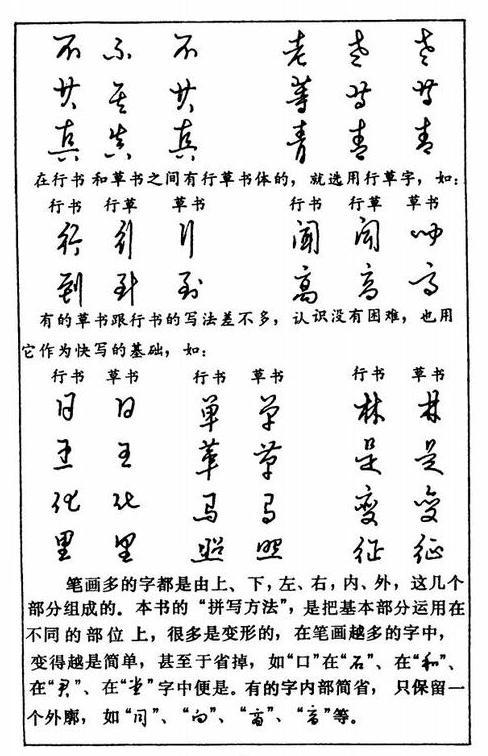 不 不 不 老 老 老
共 共 共 等 等 等
真 真 真 青 青 青
在行书和草书之间有行草书体的，就选用行草字，如：
行书 行草 草书 行书 行草 草书
行 行 行 闻 闻 闻
到 到 到 高 高 高
有的草书跟行书的写法差不多，认识没有困难，也用
它作为快写的基础，如：
行书 草书 行书 草书 行书 草书
日 日 单 单 林 林
王 王 革 草 是 是
化 化 马 马 变 变
里 里 照 照 征 征
笔画多的字都是由上、下，左、右，内、外，这几个
部分组成的。本书的“拼写方法”，是把基本部分运用在
不同的部位上，很多是变形的，在笔画越多的字中，
变得越是简单，甚至于省掉，如“口”在“石”、在“和”、
在“君”、在“尝”字中便是。有的字内部简省，只保留一
个外廓，如“同”、“向”、“畜”、“音”等。